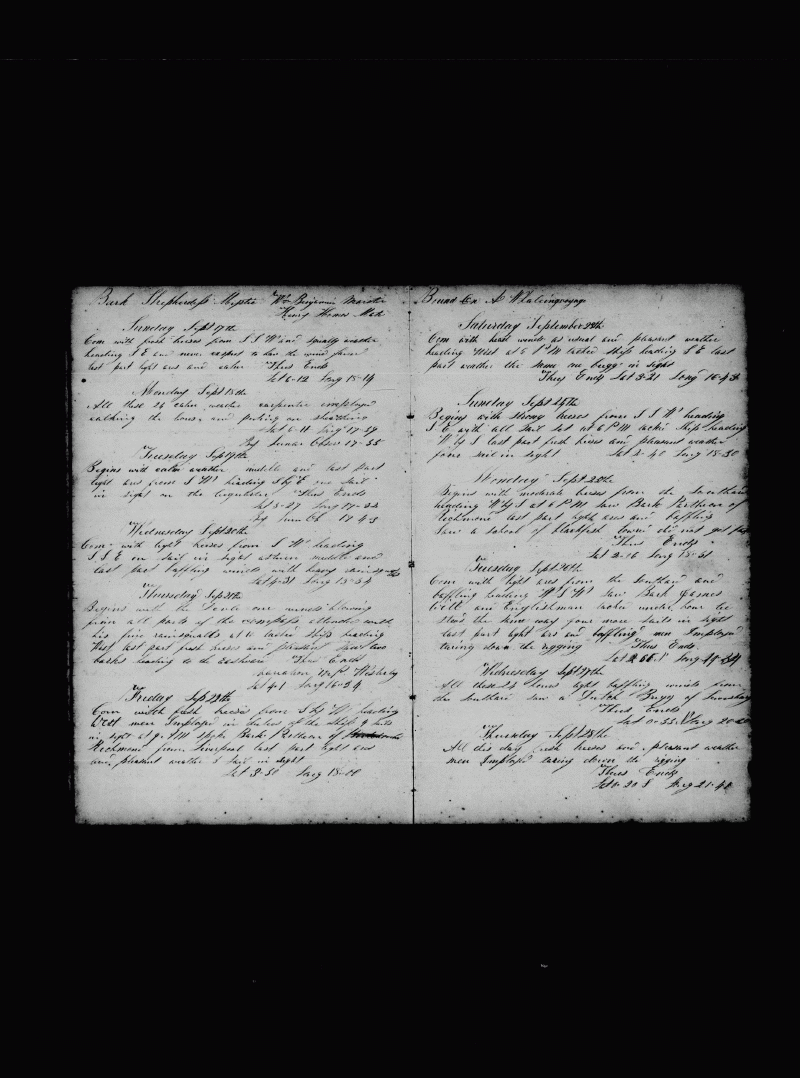 Bark Shepherdess Mystic Wm Benjamin Master
Henry Holmes Mate
Sunday Sept 17th
Com with fresh breses from S S W and squally weather
heading S E
last part light aus and calm Thus Ends
Lat 6-12 Long 18-14
Monday Sept 18th
All these 24 calm weather carpenter imployed
calking the house and puting on sheathing
Lat 6-11 Long 17-59
By Lunar Obser 17-55
Tuesday Sept 19th
Begins with calm weather middle and last part
light aus from S W heading S by E one sail
in sight on the Thus Ends
Lat 5-27 Long 17-22
By Lunar Ob 17-43
Wednesday Sept 20th
Com with light breses from S W heading
S S E on sail in sight astern middle and
last part baffling winds with heavy rain squalls
Lat 4-31 Long 15-54
Thursday Sept 21th
Begins with the winds blowing
from all parts of the compass attended with
his fine rainsqualls at 6 tacked ship heading
West last part fresh breses and pleasant saw two
barks heading to the eastward Thus Ends
Westerly
Lat 4-1 Long 16-24
Friday Sept 22th
Com with fresh breses from S by W heading
West men Imployd in duties of the ship 9 sails
in sight at 9 AM spoke Bark Parthean of
Richmond from Liverpool last part light aus
and pleasant weather 5 sail in sight
Lat 3-50 Long 18-00
Bound On A Whaleingvoyage
Saturday September 23th
Com with head winds as usual and pleasant weather
heading West at 6 P M tacked ship heading S E last
part weather the same one brigg in sight
Thus Ends Lat 3-21 Long 18-43
Sunday Sept 24th
Begins with strong breses from S S W heading
S E with all sail set at 6 P M tackt ship heading
W by S last part fresh breses and pleasant weather
four sail in sight Lat 2-40 Long 18-50
Monday Sept 25th
Begins with moderate breses from the Southard
heading W by S at 6 P M saw Bark Parthean of
Richmond last part light aus and baffling
saw a school of blackfish lowerd did not get fast
Thus Ends
Lat 2-16 Long 18-51
Tuesday Sept 26th
Com with light aus from the Southard and
baffling heading W S W saw Bark James
and Englishman
the same way four more sails in sight
last part light ars and baffling men Imployd
taring down the rigging Thus Ends
Wednesday Sept 27th
All these 24 hours light baffling winds from
the Southard saw a Dutch Brigg
Thus Ends
Lat 0-55 Long 20-
Thursday Sept 28th
All this day fresh breses and pleasant weather
men Imployed taring down the rigging
Thus Ends
Lat 0-20 S Long 21-42